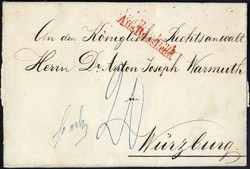 An den Königlichen Rechtsanwalt
Herrn Dr. Anton Joseph Warmuth
in
Würzburg.